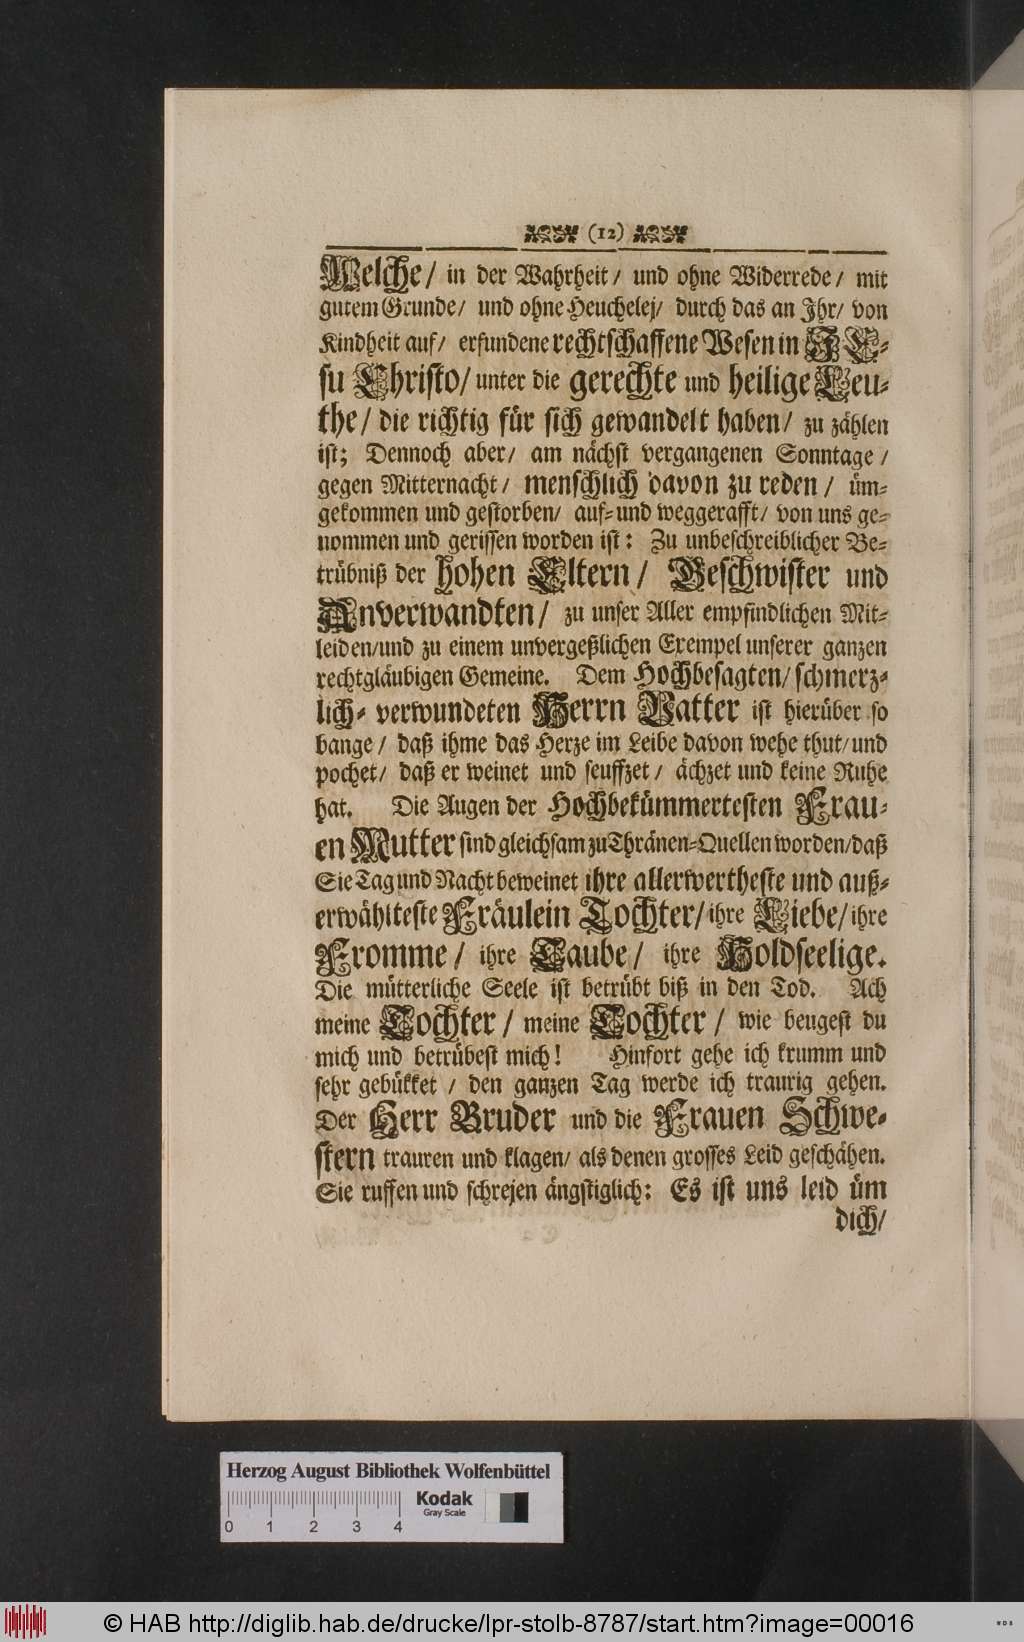 (12)
Welche/ in der Wahrheit/ und ohne Widerrede/ mit
gutem Grunde/ und ohne Heuchelej/ durch das an Ihr/ von
Kindheit auf/ erfundene rechtschaffene Wesen in JE-
su Christo/ unter die gerechte und heilige Leu-
the/ die richtig für sich gewandelt haben/ zu zählen
ist; Dennoch aber/ am nächst vergangenen Sonntage/
gegen Mitternacht/ menschlich davon zu reden/ üm-
gekommen und gestorben/ auf- und weggerafft/ von uns ge-
nommen und gerissen worden ist: Zu unbeschreiblicher Be-
trübniß der hohen Eltern/ Geschwister und
Anverwandten/ zu unser Aller empfindlichen Mit-
leiden/und zu einem unvergeßlichen Exempel unserer ganzen
rechtgläubigen Gemeine. Dem Hochbesagten/ schmerz-
lich- verwundeten Herrn Vatter ist hierüber so
bange/ daß ihme das Herze im Leibe davon wehe thut/und
pochet/ daß er weinet und seuffzet/ ächzet und keine Ruhe
hat. Die Augen der Hochbekümmertesten Frau-
en Mutter sind gleichsam zu Thränen-Quellen worden/daß
Sie Tag und Nacht beweinet ihre allerwertheste und auß-
erwählteste Fräulein Tochter/ ihre Liebe/ ihre
Fromme/ ihre Taube/ ihre Holdseelige.
Die mütterliche Seele ist betrübt biß in den Tod. Ach
meine Tochter/ meine Tochter/ wie beugest du
mich und betrübest mich! Hinfort gehe ich krumm und
sehr gebükket/ den ganzen Tag werde ich traurig gehen.
Der Herr Bruder und die Frauen Schwe-
stern trauren und klagen/ als denen grosses Leid geschähen.
Sie ruffen und schrejen ängstiglich: Es ist uns leid üm
dich/
Herzog August Bibliothek Wolfenbüttel
Kodak
Gray Scale
0 1 2 3 4
© HAB http://diglib.hab.de/drucke/lpr-stolb-8787/start.htm?image=00016